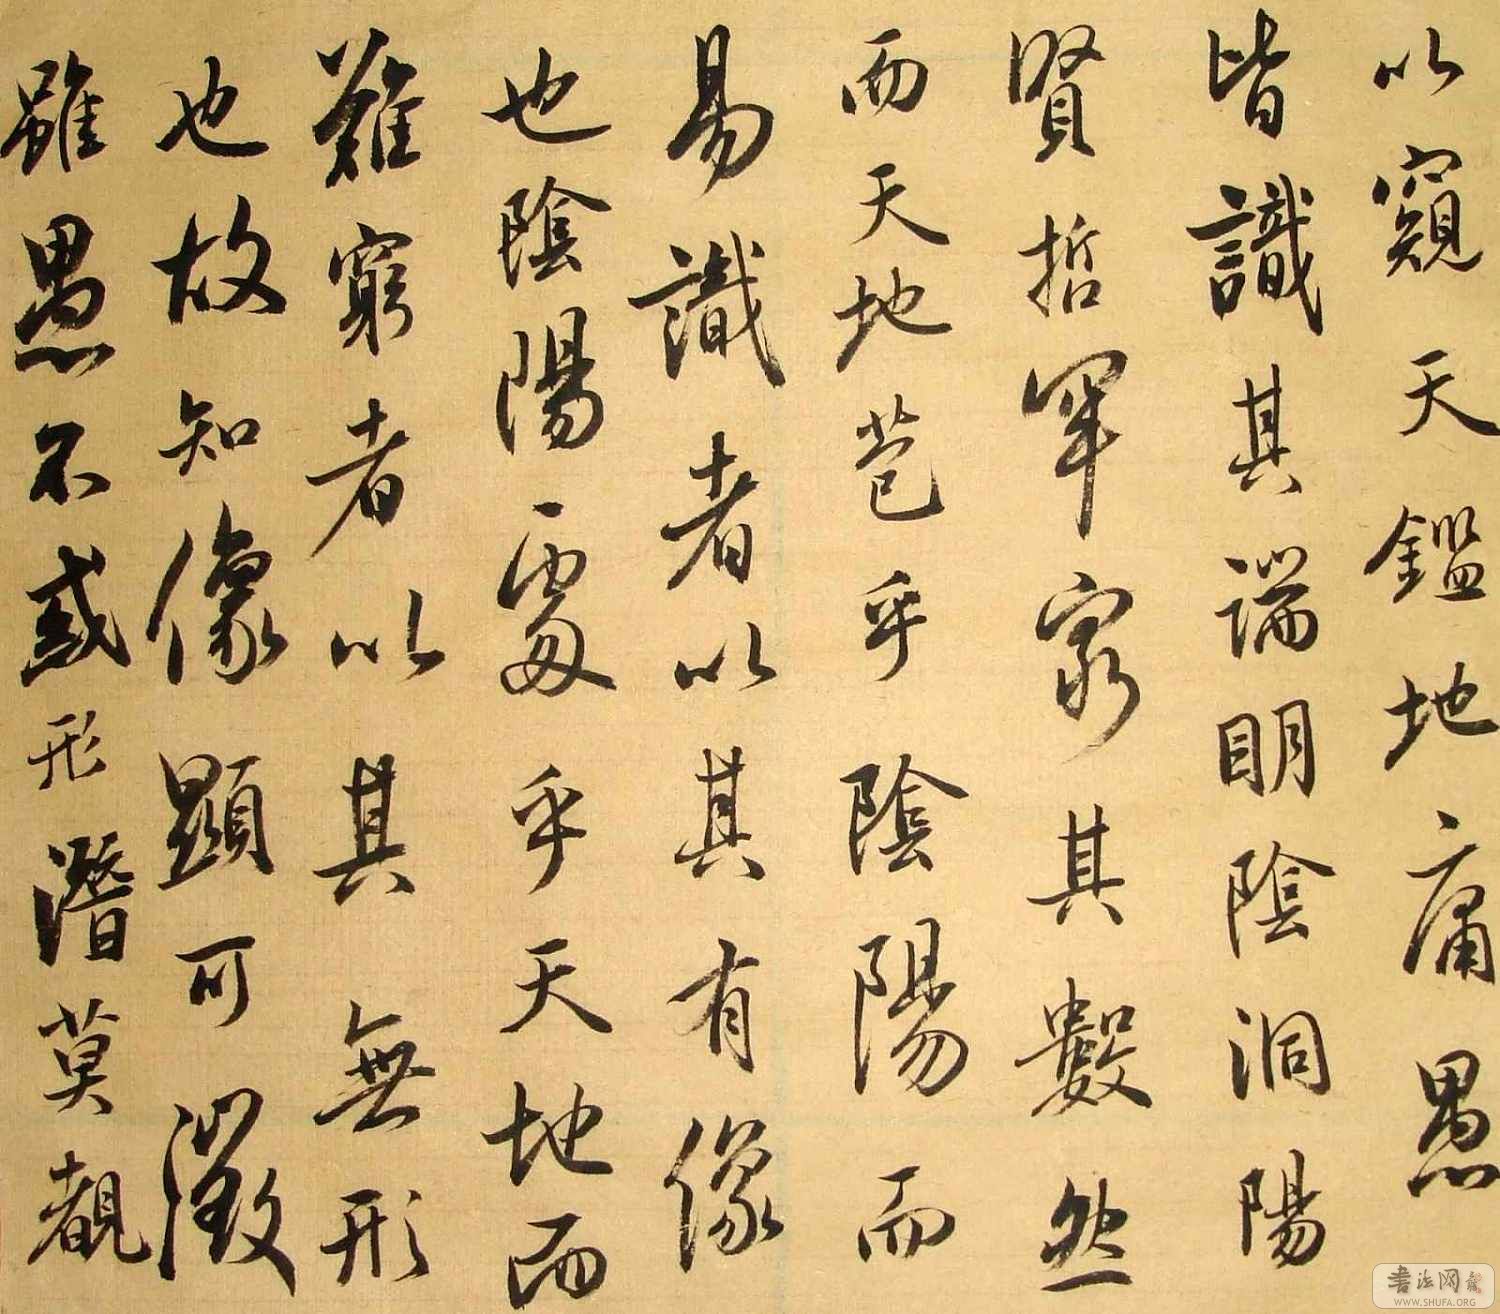 以窺天鑑地庸愚
皆識其端明陰洞陽
賢哲罕窮其數然
而天地苞乎陰陽而
易識者以其有像
也陰陽處乎天地而
難窮者以其無形
也故知像顯可徵
雖愚不惑形潛莫覩
書法网
WWW.SHUFA.ORG